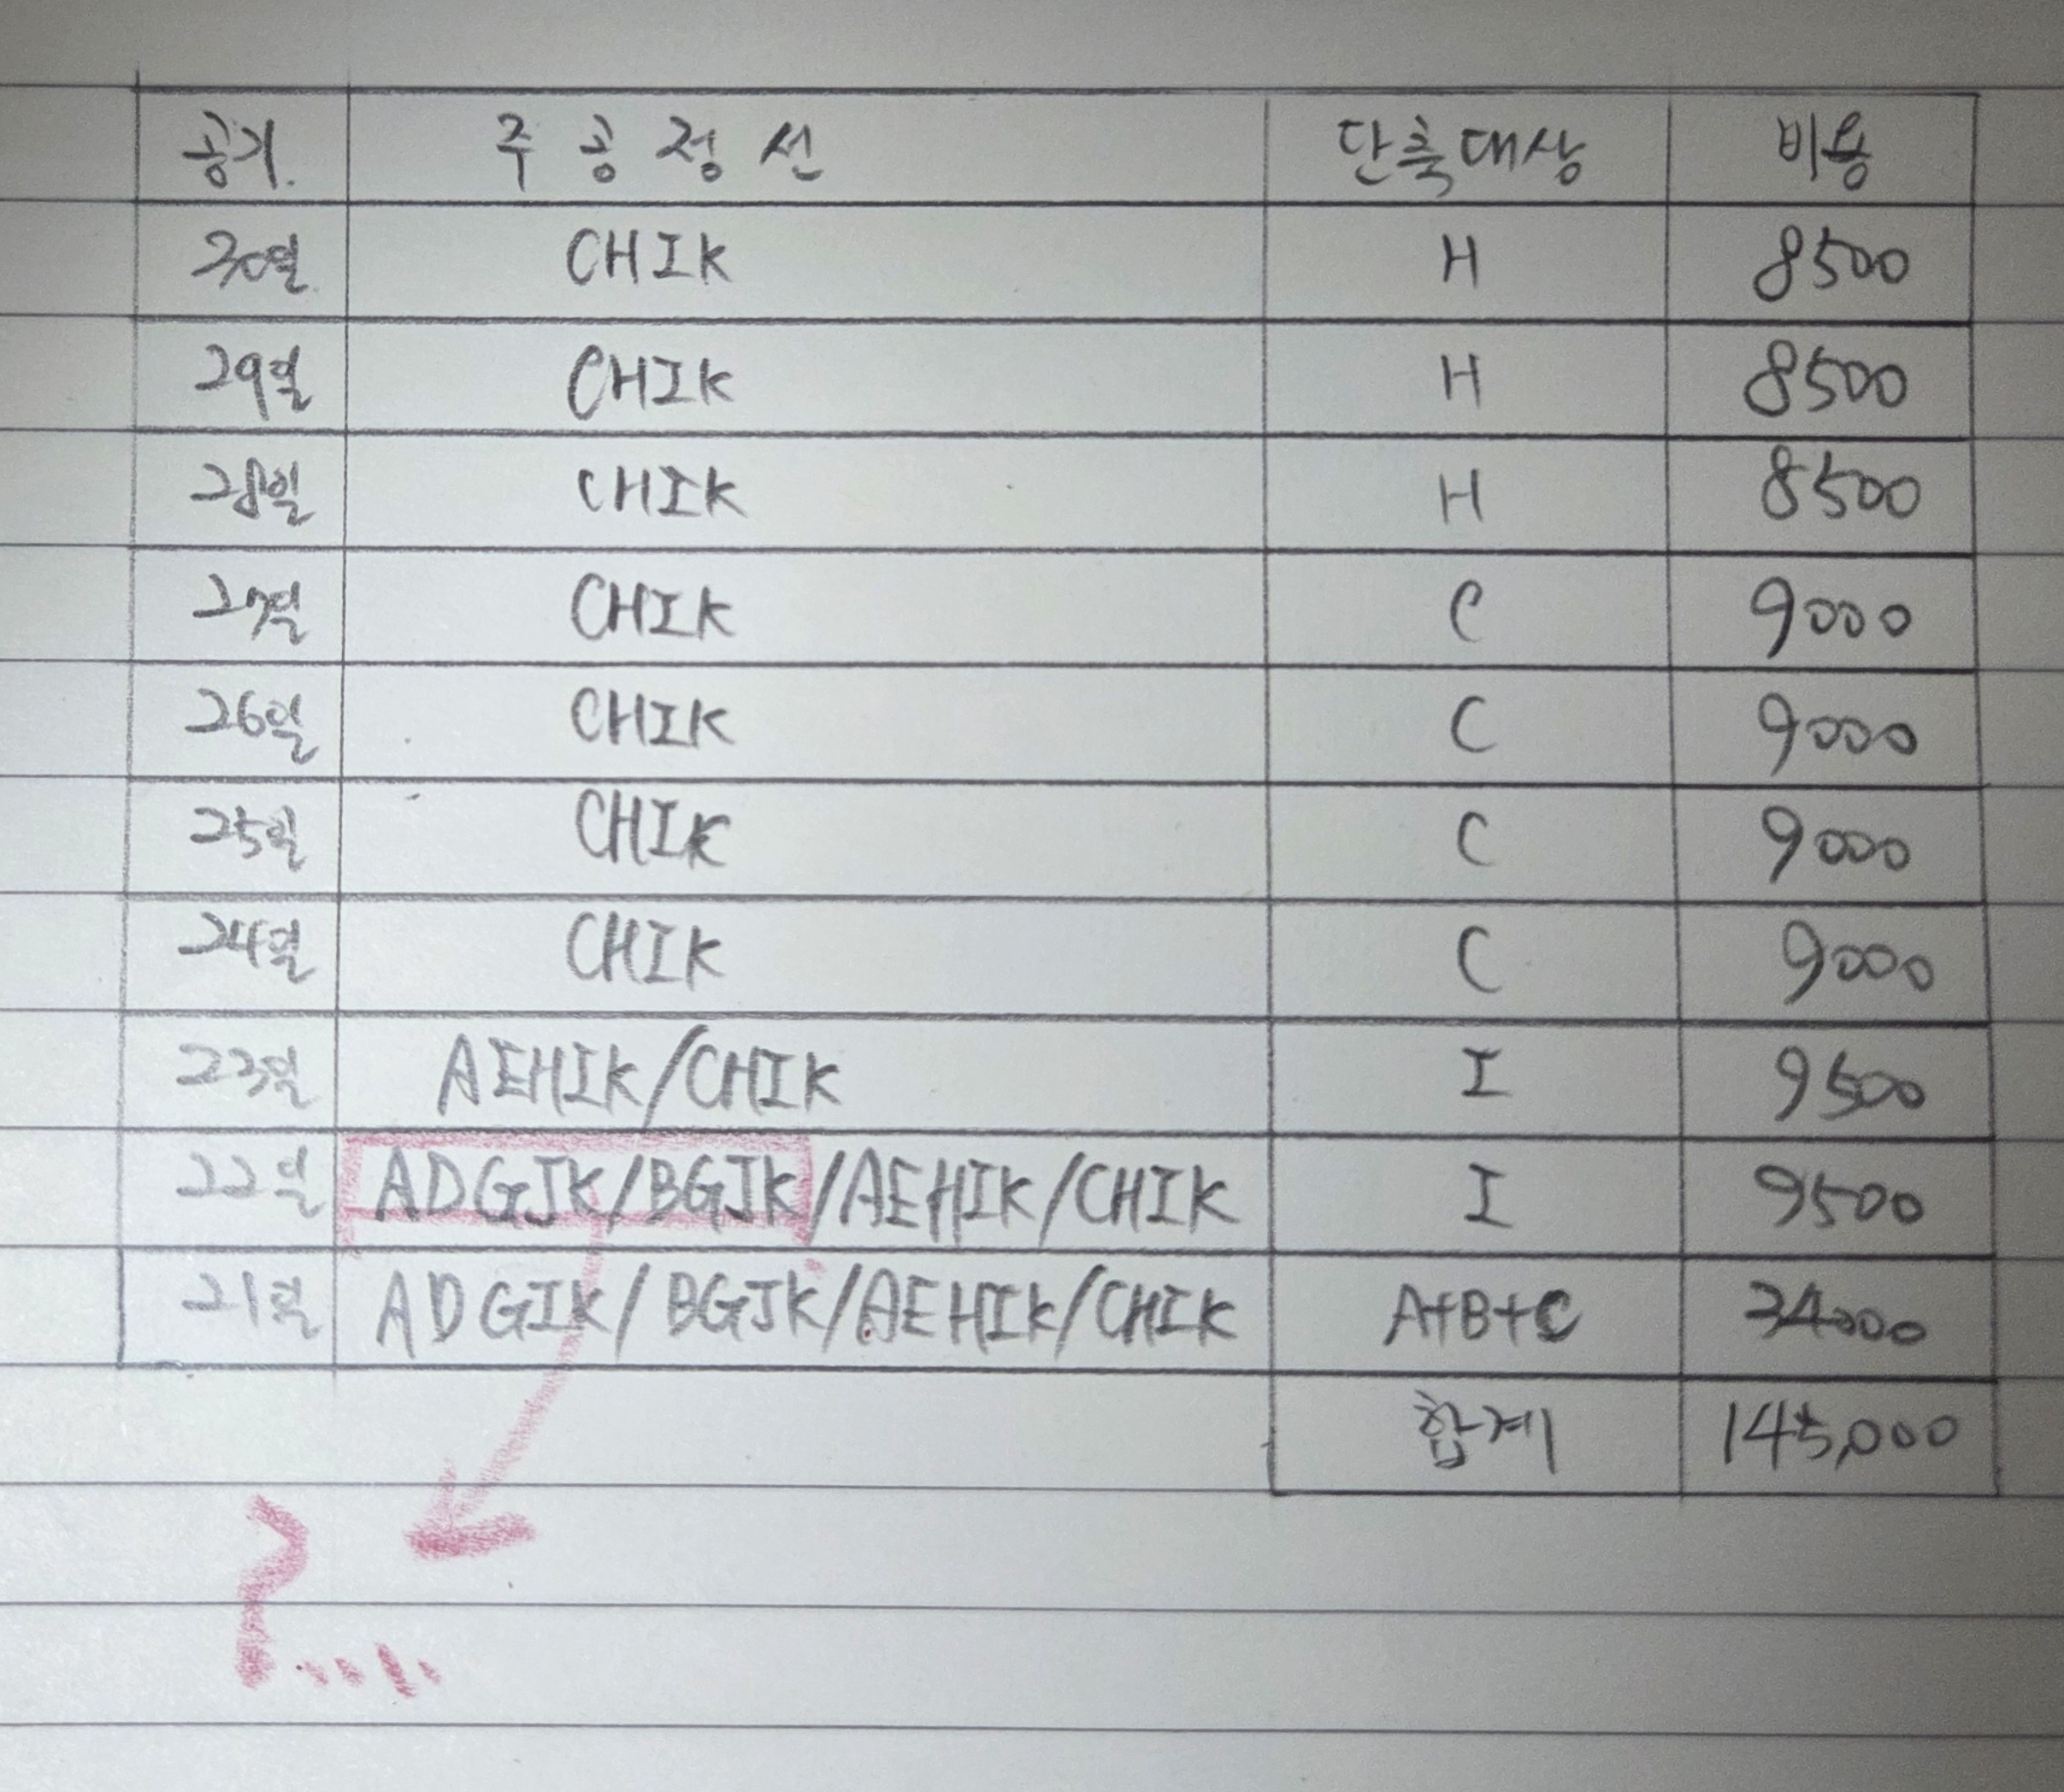 공기 주공정선 단축대상 비용
30일 CHIK H 8500
29일 CHIK H 8500
28일 CHIK H 8500
27일 CHIK C 9000
26일 CHIK C 9000
25일 CHIK C 9000
24일 CHIK C 9000
23일 AEHIK/CHIK I 9500
22일 ADGJK/BGJK/AEHIK/CHIK I 9500
21일 ADGIK/BGJK/AEHIK/CHIK A+B+C 34000
합계 145,000
?....